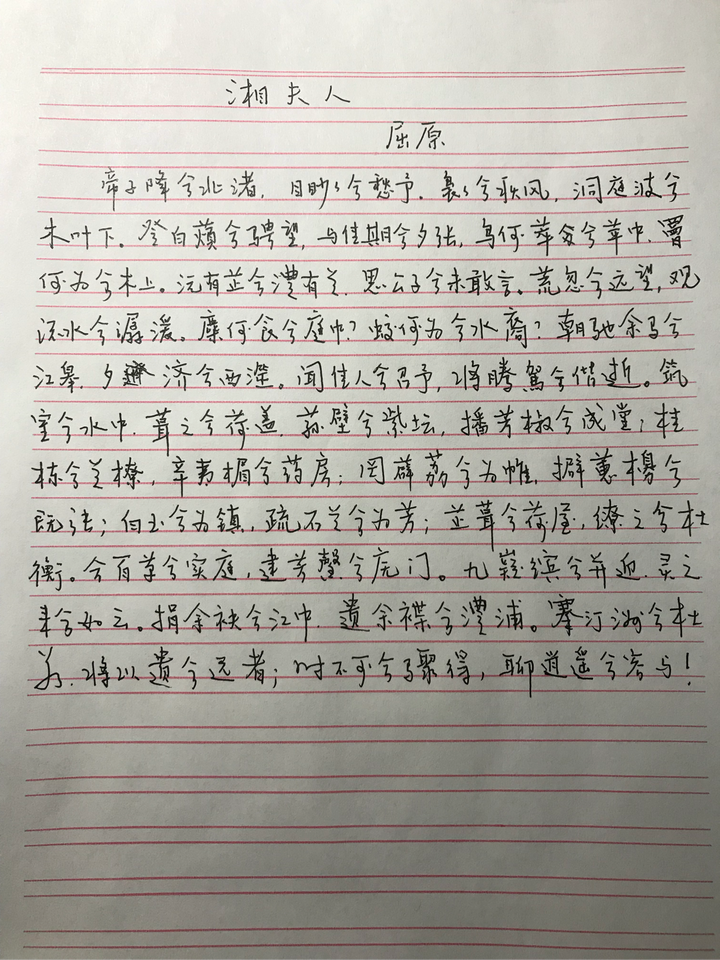 湘夫人
屈原
帝子降兮北渚,目眇々兮愁予.袅々兮秋风,洞庭波兮
木叶下。登白薠兮骋望,与佳期兮夕张,鸟何萃兮兮苹中.罾
何为兮木上。沅有芷兮澧有兰.思公子兮未敢言。荒忽兮远望,观
流水兮潺湲。麋何食兮庭中?蛟何为兮水裔?朝驰余马兮
江皋,夕济兮西澨。闻佳人兮召予,将腾驾兮偕逝。筑
室兮水中.葺之兮荷盖.荪壁兮紫坛,播芳椒兮成堂;桂
栋兮兰橑,辛夷楣兮药房;罔薜荔兮为帷.擗蕙櫋兮
既张;白玉兮为镇,疏石兰兮为芳;芷葺兮荷屋,缭之兮杜
衡。合百草兮实庭,建芳馨兮庑门。九嶷缤兮并迎.灵之
来兮如云。捐余袂兮江中.遗余褋兮澧浦。搴汀洲兮杜
若.将以遗兮远者;时不可兮骤得,聊逍遥兮容与!